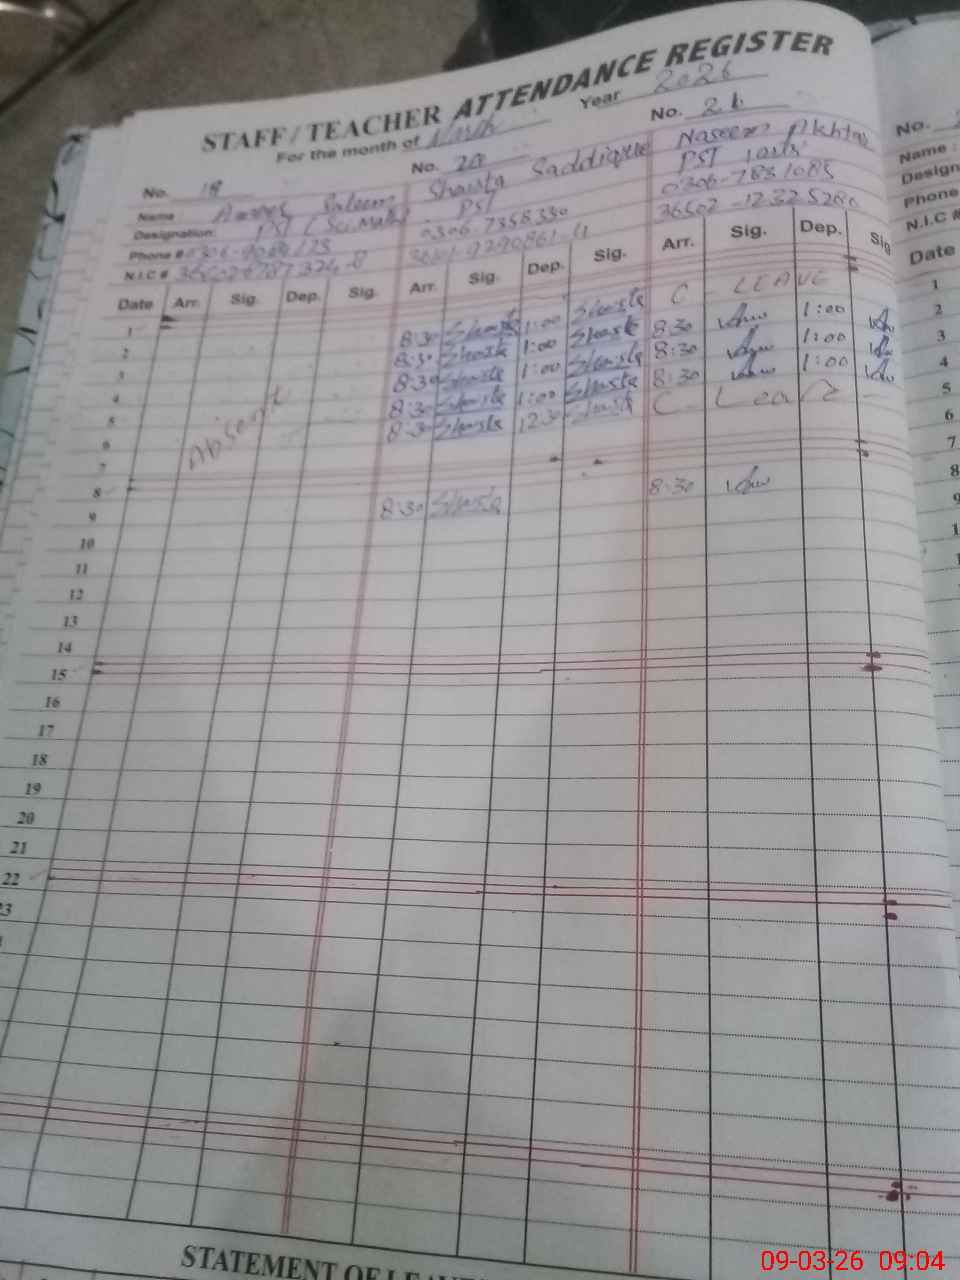 STAFF / TEACHER ATTENDANCE REGISTER
For the month of March Year 2026
No. 19 No. 20 No. 21
Name Saleem Shaista Saddique Naseem Akhtar
Designation PST (Sci.Math) PST PST (arts)
Phone # 0306-7358330 0306-7831085
N.I.C # 36502-1232528
Date Arr. Sig. Dep. Sig. Arr. Sig. Dep. Sig. Arr. Sig. Dep. Sig
1
2 8:30 Shaista 1:00 Shaista C - LEAVE
3 8:30 Shaista 1:00 Shaista 8:30 1:00
4 8:30 Shaista 1:00 Shaista 8:30 1:00
5 8:30 Shaista 1:00 Shaista 8:30 1:00
6 8:30 Shaista 12:30 Shaista C - Leave
Absent
7
8
9 8:30 Shaista 8:30
10
11
12
13
14
15
16
17
18
19
20
21
22
23
STATEMENT OF LEAVE
No.
Name :
Design
Phone
N.I.C #
Date
1
2
3
4
5
6
7
8
9
09-03-26 09:04